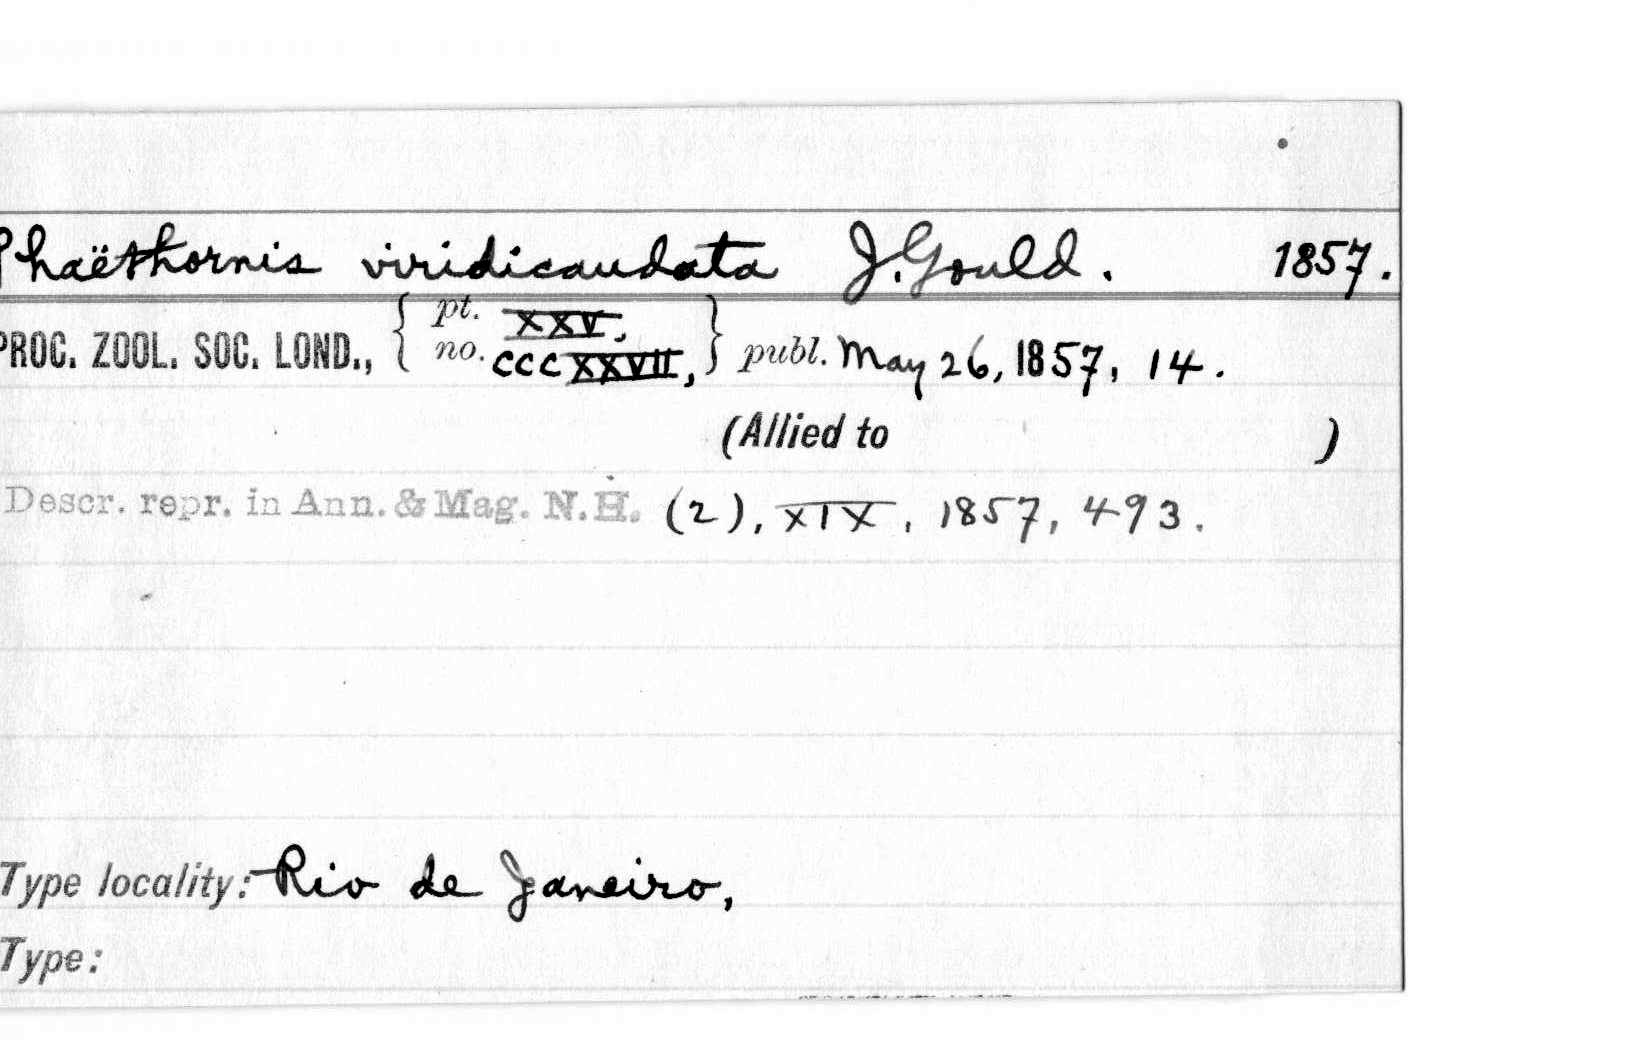 Phaëthornis viridicaudata J. Gould. 1857.
PROC. ZOOL. SOC. LOND., { pt. XXV, no. CCCXXVII, } publ. May 26, 1857, 14.
(Allied to )
Descr. repr. in Ann. & Mag. N.H. (2), XIX, 1857, 493.
Type locality: Rio de Janeiro,
Type: